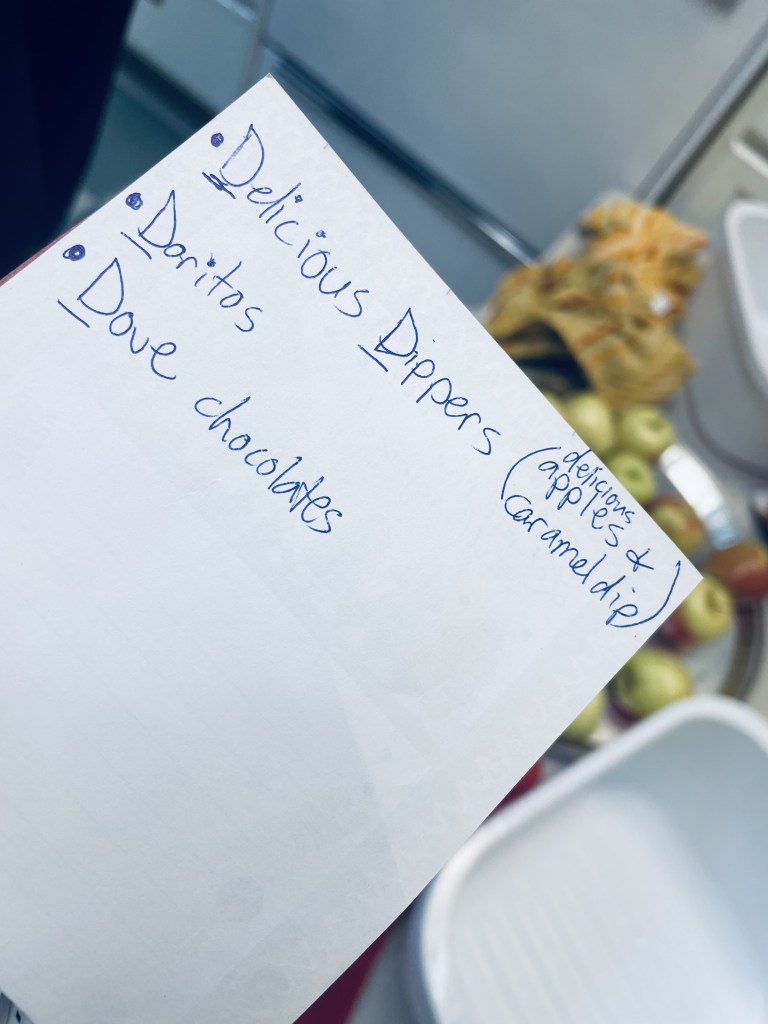 • Delicious Dippers (delicious
apples &
caramel dip)
• Doritos
• Dove chocolates